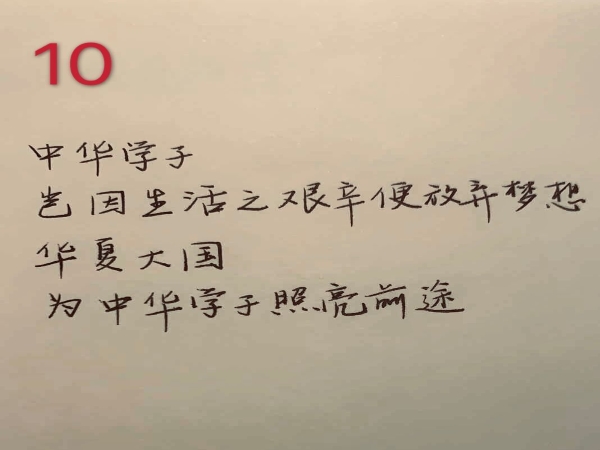 10
中华学子
岂因生活之艰辛便放弃梦想
华夏大国
为中华学子照亮前途